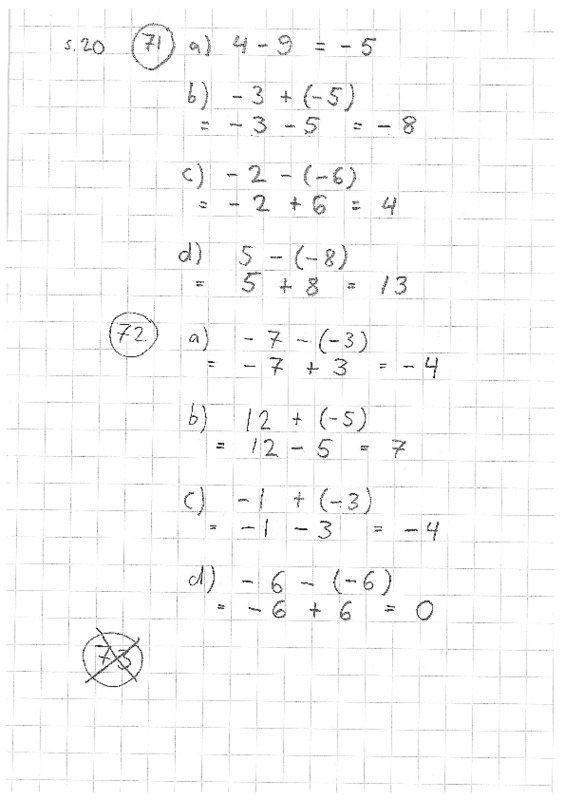 s.20 71 a) 4 - 9 = -5
b) -3 + (-5)
= -3 - 5 = -8
c) -2 - (-6)
= -2 + 6 = 4
d) 5 - (-8)
= 5 + 8 = 13
72 a) -7 - (-3)
= -7 + 3 = -4
b) 12 + (-5)
= 12 - 5 = 7
c) -1 + (-3)
= -1 - 3 = -4
d) -6 - (-6)
= -6 + 6 = 0
73